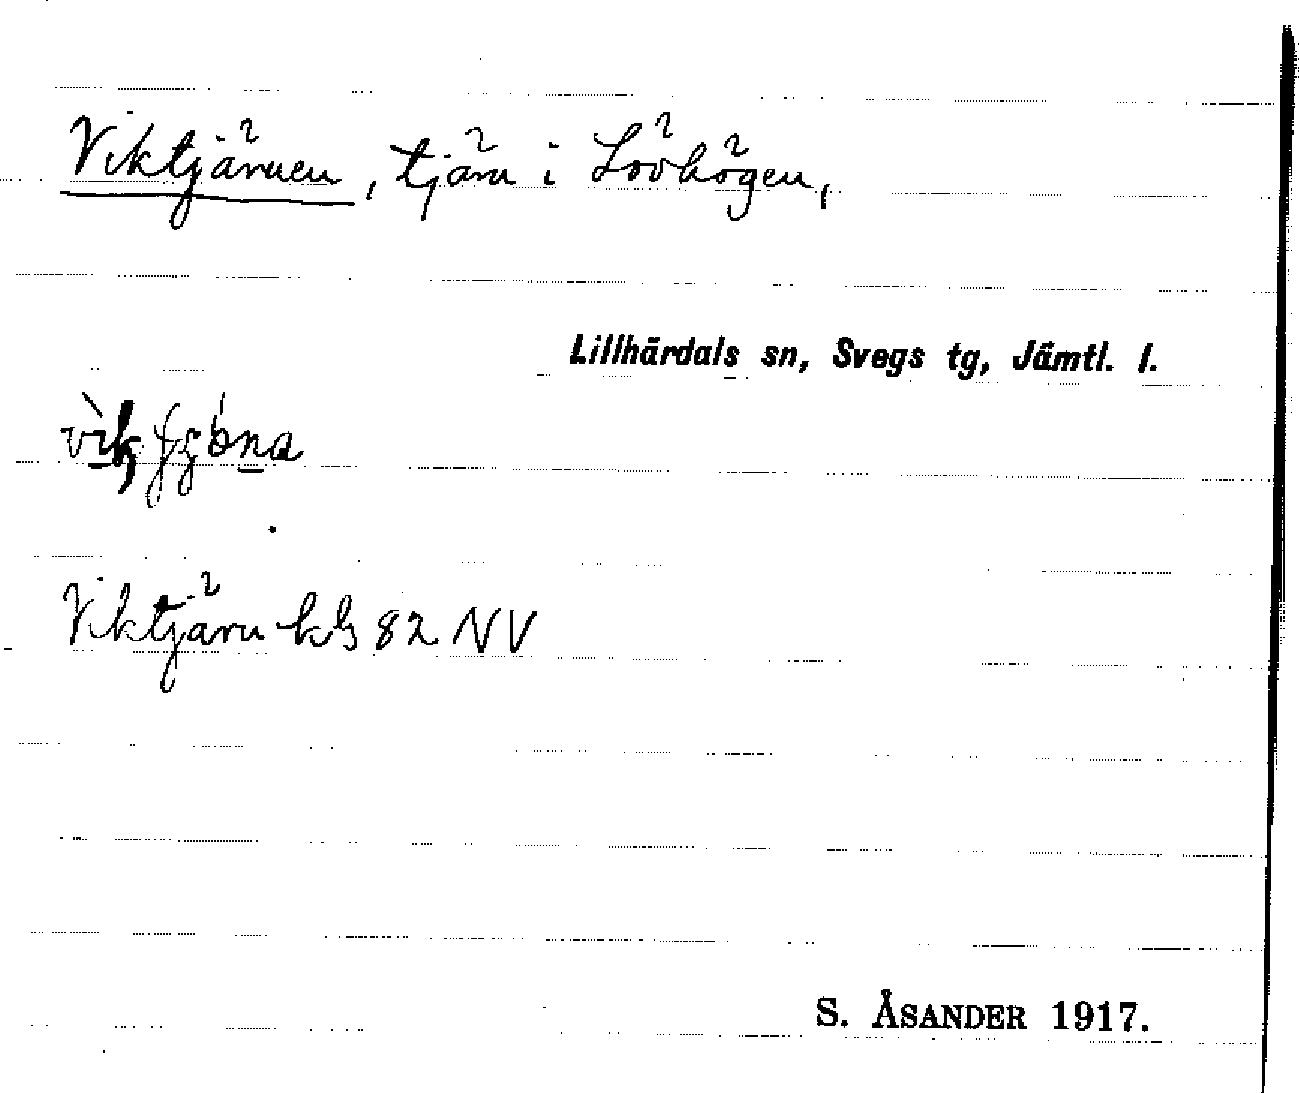 Viktjärnen, tjärn i Lövhögen,
Lillhärdals sn, Svegs tg, Jämtl. l.
Viktjärn kb 82 NV
S. ÅSANDER 1917.